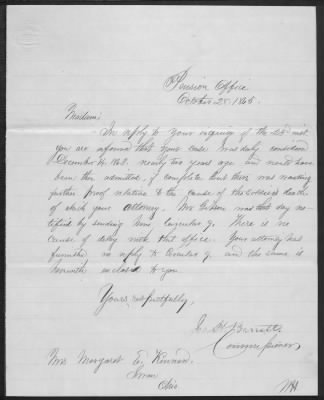 Pension Office
October 25. 1865.
Madam:
In reply to your inquiry of the 23d inst.
you are informed that your case was duly considered
December 14. 1863. nearly two years ago and would have
been then admitted, if complete but there was wanting
further proof relative to the cause of the soldier's death
of which your Attorney. Mr. was that day no-
tified by sending him Circular 9. There is no
cause of delay with this office. Your attorney has
furnished no reply to Circular 9. and the same is
herewith enclosed to you.
Yours, respectfully,
J. H. Barrett
Commissioner
Mrs. Margaret E.
Ohio.